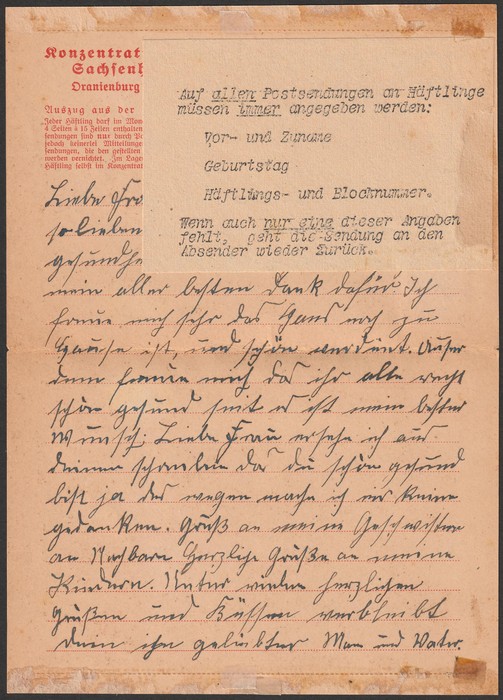 Konzentrat
Sachsenh
Oranienburg
Auszug aus der
Jeder Häftling darf im Mon
4 Seiten à 15 Zeilen enthalten
sendungen sind nur durch P
der gestellten
werden vernichtet. Im Lage
Häftling selbst im Konzentrat
Auf allen Postsendungen an Häftlinge
müssen immer angegeben werden:
Vor- und Zuname
Geburtstag.
Häftlings- und Blocknummer.
Wenn auch nur eine dieser Angaben
fehlt, geht die Sendung an den
Absender wieder zurück.
Liebe Fra
so lieben
gesundhe
mein aller besten Dank dafür. Ich
freue mich sehr das Hans noch zu
Hause ist, und schön verdint. Auser
dem freue mich das ihr alle recht
schön gesund seit es ist mein bester
Wunsch; Liebe Frau ersehe ich aus
deinen schreiben das du schön gesund
bist ja des wegen mache ich mir keine
gedanken. Gruß an meine Geschwister
an Nachbarn Herzliche Grüße an meine
Kindern. Unter vielen herzlichen
Grüßen und Küssen verbleibt
dein ihr geliebter Mann und Vater.